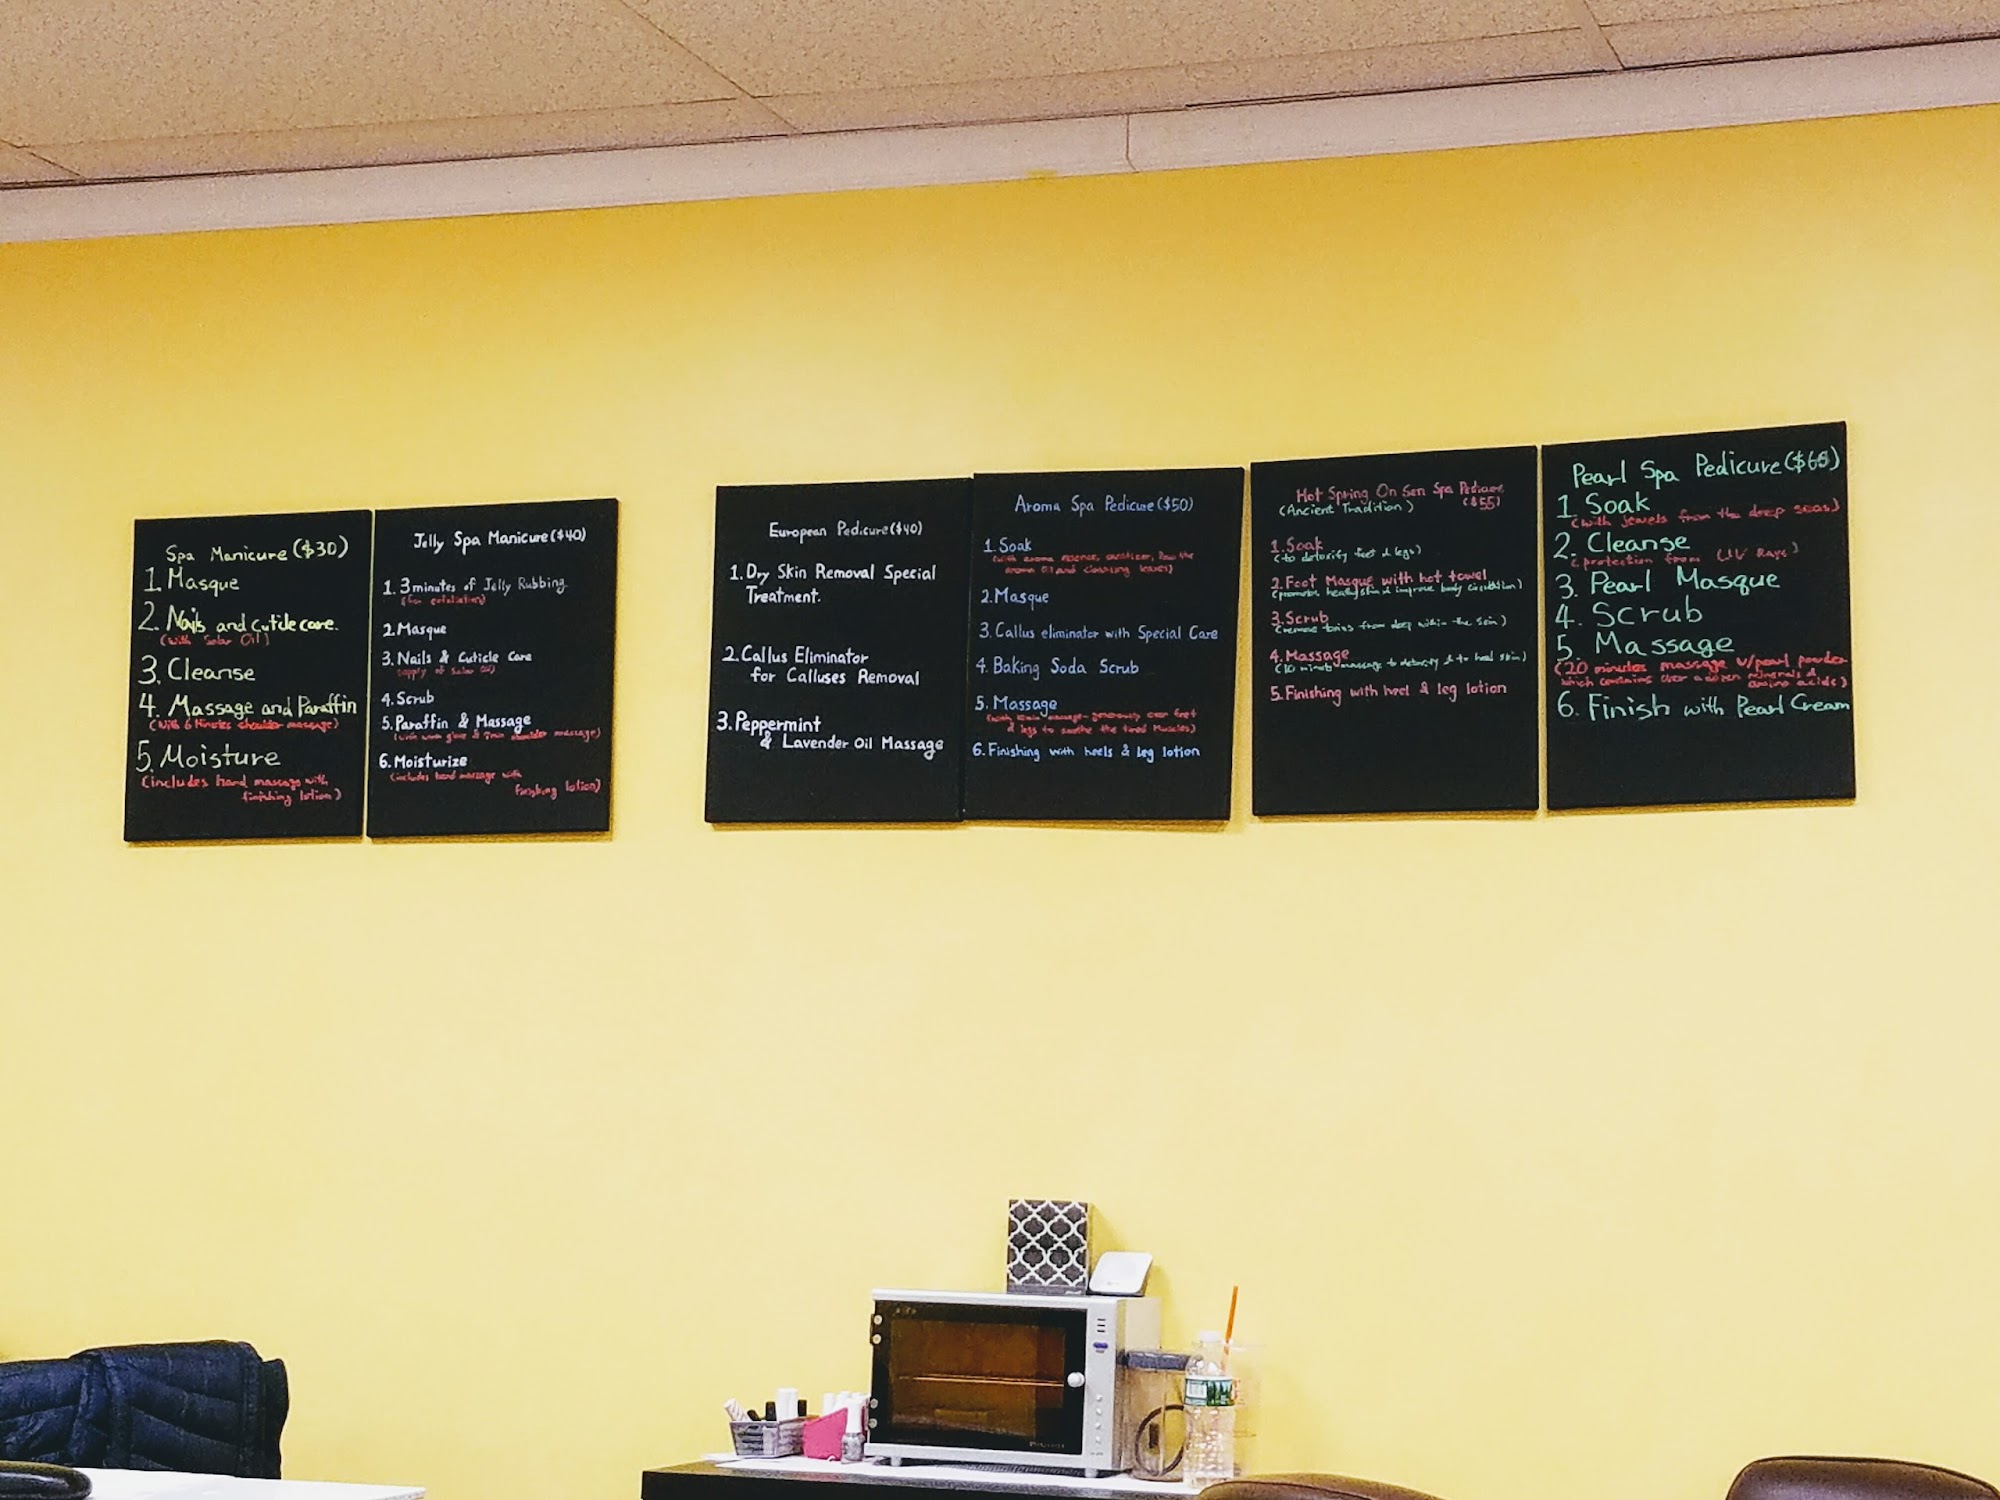 Spa Manicure ($30)
1. Masque
2. Nails and cuticle care.
(with Solar Oil)
3. Cleanse
4. Massage and Paraffin
(with 6 Minutes shoulder massage)
5. Moisture
(includes hand massage with
finishing lotion)
Jelly Spa Manicure ($40)
1. 3 minutes of Jelly Rubbing.
(for exfoliation)
2. Masque
3. Nails & Cuticle Care
supply of Solar Oil)
4. Scrub
5. Paraffin & Massage
(with warm glove & shoulder massage)
6. Moisturize
(includes hand massage with
finishing lotion)
European Pedicure ($40)
1. Dry Skin Removal Special
Treatment.
2. Callus Eliminator
for Calluses Removal
3. Peppermint
& Lavender Oil Massage
Aroma Spa Pedicure ($50)
1. Soak
(with aroma essence, sanitizer, the
aroma oil and cleansing leaves)
2. Masque
3. Callus eliminator with Special Care
4. Baking Soda Scrub
5. Massage
(with massage - generously over feet
& legs to soothe the tired Muscles)
6. Finishing with heels & leg lotion
Hot Spring On Sen Spa Pedicure
(Ancient Tradition) ($55)
1. Soak
(to detoxify feet & legs)
2. Foot Masque with hot towel
(promote healthy skin & improve body circulation)
3. Scrub
(remove toxins from deep within the skin)
4. Massage
(10 minute massage to detoxify & to heal skin)
5. Finishing with heel & leg lotion
Pearl Spa Pedicure ($65)
1. Soak
(with jewels from the deep seas)
2. Cleanse
(protection from UV Rays)
3. Pearl Masque
4. Scrub
5. Massage
(20 minutes massage w/pearl powder
which contains over a dozen minerals &
amino acids)
6. Finish with Pearl Cream